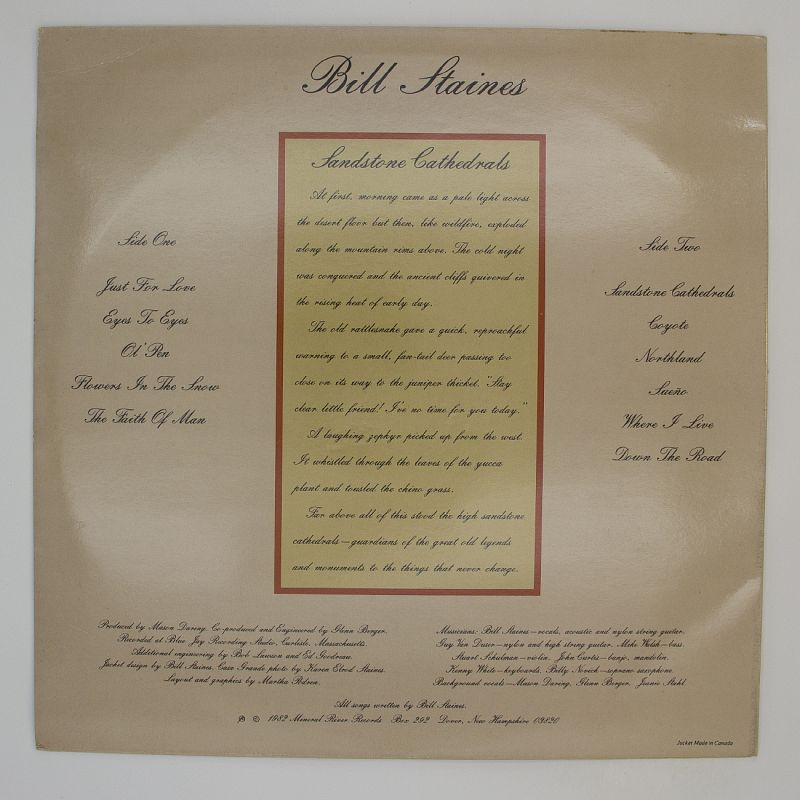 Bill Staines
Sandstone Cathedrals
At first, morning came as a pale light across
the desert floor but then, like wildfire, exploded
along the mountain rims above. The cold night
was conquered and the ancient cliffs quivered in
the rising heat of early day.
The old rattlesnake gave a quick, reproachful
warning to a small, fan-tail deer passing too
close on its way to the juniper thicket. "Stay
clear little friend! I've no time for you today."
A laughing zephyr picked up from the west.
It whistled through the leaves of the yucca
plant and tousled the chino grass.
Far above all of this stood the high sandstone
cathedrals—guardians of the great old legends
and monuments to the things that never change.
Side One
Just For Love
Eyes To Eyes
Ol' Pen
Flowers In The Snow
The Faith Of Man
Side Two
Sandstone Cathedrals
Coyote
Northland
Sueño
Where I Live
Down The Road
Produced by Mason Daring. Co-produced and Engineered by Glenn Berger.
Recorded at Blue Jay Recording Studio, Carlisle, Massachusetts.
Additional engineering by Bob Lawson and Ed Goodreau.
Jacket design by Bill Staines. Casa Grande photo by Karen Elrod Staines.
Layout and graphics by Martha
Musicians: Bill Staines—vocals, acoustic and nylon string guitar.
Guy Van Duser—nylon and high string guitar. Mike Walsh—bass.
Stuart Schulman—violin. John Curtis—banjo, mandolin.
Kenny White—keyboards. Billy Novick—soprano saxophone.
Background vocals—Mason Daring, Glenn Berger, Jeanie Stahl.
All songs written by Bill Staines.
℗ © 1982 Mineral River Records Box 292 Dover, New Hampshire 03820
Jacket Made in Canada